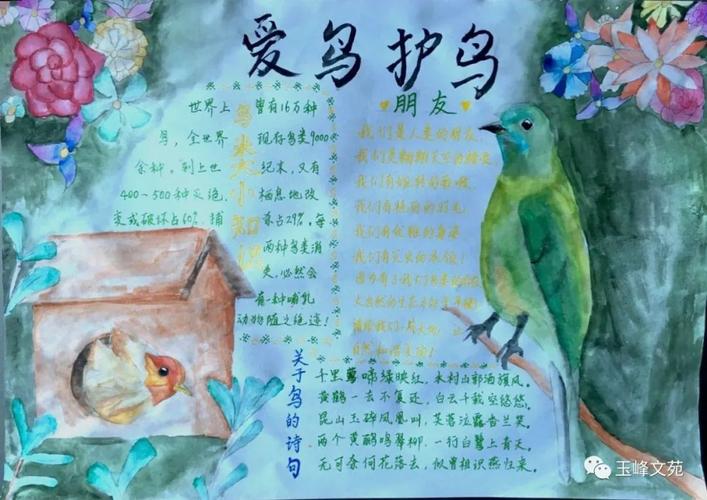 爱鸟护鸟
世界上曾有16万种
鸟，全世界现存鸟类9000
余种。到上世纪末，又有
400～500种灭绝，栖息地改
变或破坏占60%，捕杀占29%。每
两种鸟类消
失，必然会
有一种哺乳
动物随之绝迹！
鸟类大小知识
朋友
我们是人类的朋友，
我们有婉转的歌喉，
我们有艳丽的羽毛
我们有优雅的身姿
自然和谐之音！
关于鸟的诗句
千里莺啼绿映红，水村山郭酒旗风。
黄鹤一去不复返，白云千载空悠悠。
昆山玉碎凤凰叫，芙蓉泣露香兰笑。
两个黄鹂鸣翠柳，一行白鹭上青天。
无可奈何花落去，似曾相识燕归来。
玉峰文苑